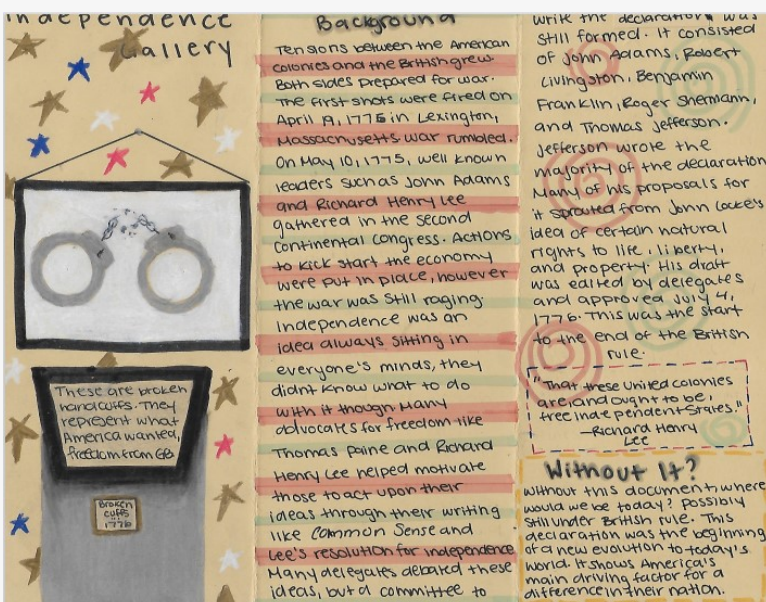 Independence
Gallery
These are broken
handcuffs. They
represent what
America wanted,
freedom from GB
Broken
cuffs
1776
Background
Tensions between the American
colonies and the British grew
Both sides prepared for war.
The first shots were fired on
April 19, 1775 in Lexington,
Massachusetts war rumbled.
On May 10, 1775, well known
leaders such as John Adams
and Richard Henry Lee
gathered in the second
continental congress. Actions
to kick start the economy
were put in place, however
the war was still raging.
Independence was an
idea always sitting in
everyone's minds, they
didnt know what to do
with it though Many
advocates for freedom like
Thomas Paine and Richard
Henry Lee helped motivate
those to act upon their
ideas through their writing
like Common Sense and
Lee's resolution for independence
Many delegates debated these
ideas, but a committee to
write the declaration was
still formed. It consisted
of John Adams, Robert
Livingston, Benjamin
Franklin, Roger Shermann,
and Thomas Jefferson.
Jefferson wrote the
majority of the declaration
Many of his proposals for
it sprouted from John Locke's
idea of certain natural
rights to life, liberty,
and property. His draft
was edited by delegates
and approved July 4,
1776. This was the start
to the end of the British
rule.
"That these United colonies
are, and ought to be,
free independent States."
-Richard Henry
Lee
Without It?
Without this document, where
would we be today? Possibly
still under British rule. This
declaration was the beginning
of a new evolution to today's
world. It shows America's
main driving factor for a
difference in their nation.